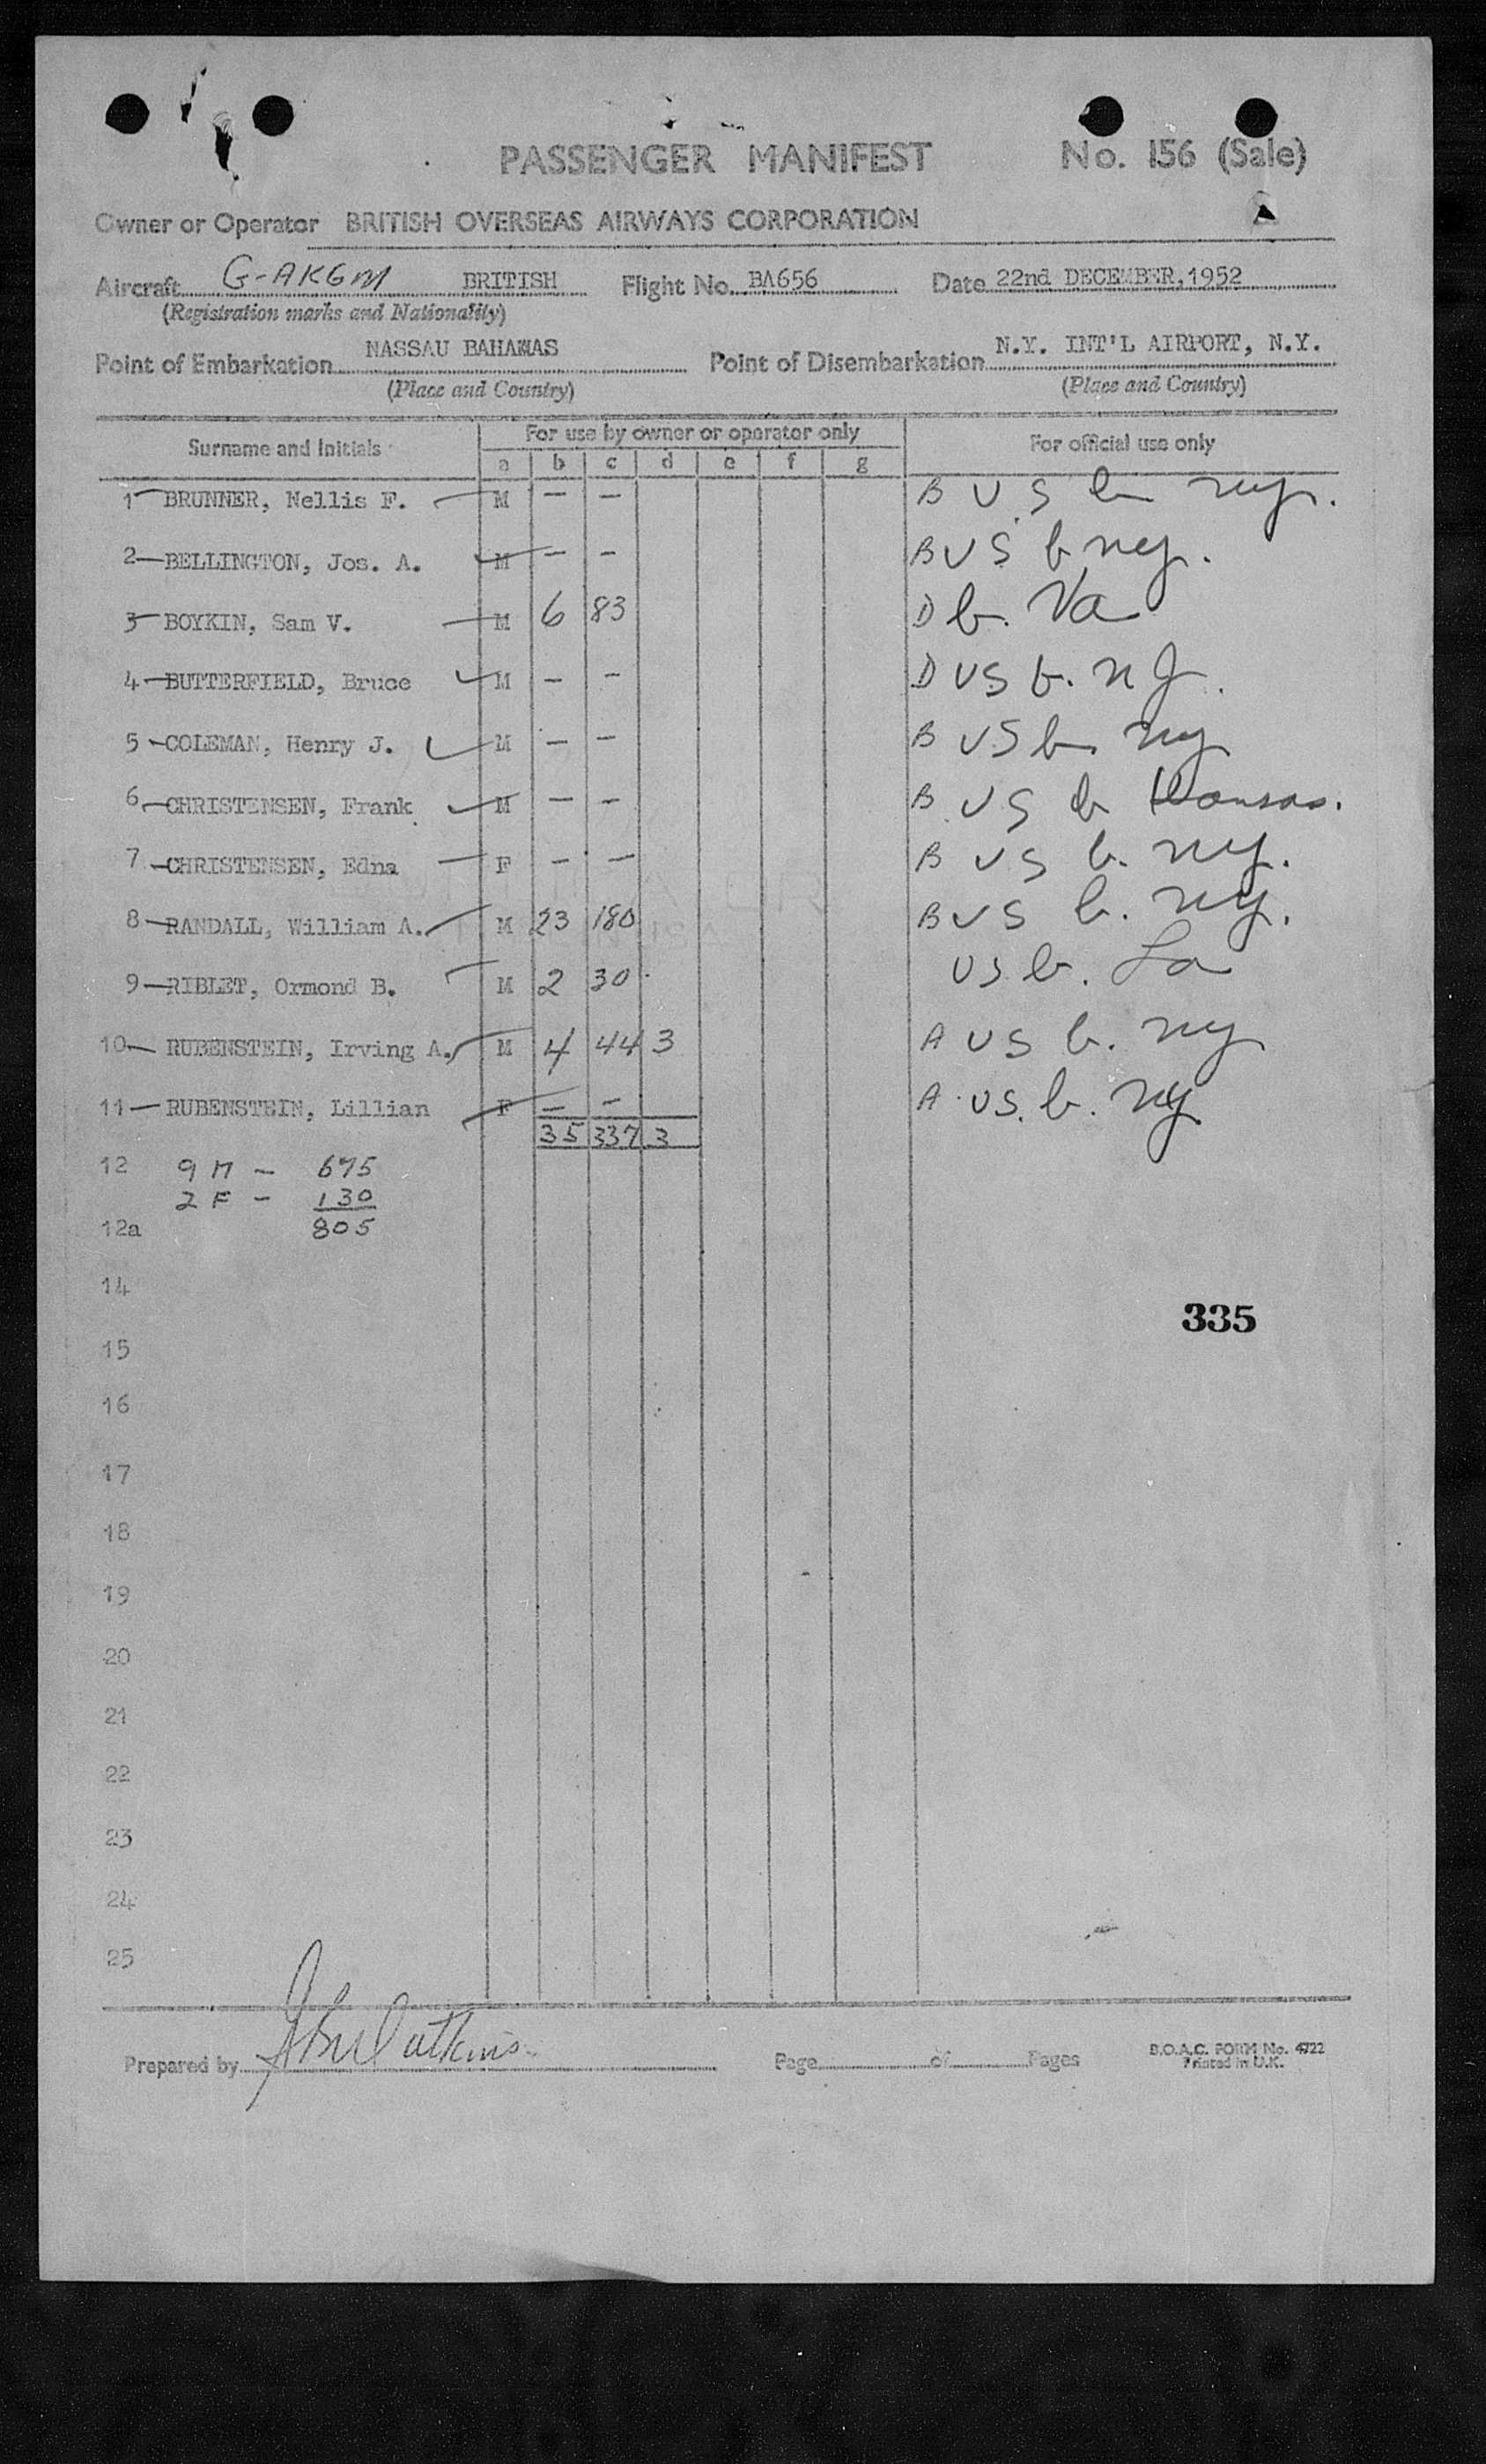 PASSENGER MANIFEST No. 156 (Sale)
Owner or Operator BRITISH OVERSEAS AIRWAYS CORPORATION
Aircraft G-AKGM BRITISH Flight No. BA656 Date 22nd DECEMBER,1952
(Registration marks and Nationality)
Point of Embarkation NASSAU BAHAMAS Point of Disembarkation N.Y. INT'L AIRPORT, N.Y.
(Place and Country) (Place and Country)
Surname and Initials For use by owner or operator only For official use only
a b c d e f g
1 BRUNNER, Nellis F. M — — B U S b ny.
2 BELLINGTON, Jos. A. M — — B U S b ny.
3 BOYKIN, Sam V. M 6 83 D b. Va
4 BUTTERFIELD, Bruce M — — D US b. n J.
5 COLEMAN, Henry J. M — — B US b. ny
6 CHRISTENSEN, Frank M — — B US b Kansas.
7 CHRISTENSEN, Edna F — — B US b. ny.
8 RANDALL, William A. M 23 180 B US b. ny.
9 RIBLET, Ormond B. M 2 30 US b. La
10 RUBENSTEIN, Irving A. M 4 44 3 A US b. ny
11 RUBENSTEIN, Lillian F — — A US. b. ny
35 337 3
12 9 M — 675
2 F — 130
12a 805
14
335
15
16
17
18
19
20
21
22
23
24
25
Prepared by Page of Pages B.O.A.C. FORM No. 4722
Printed in U.K.